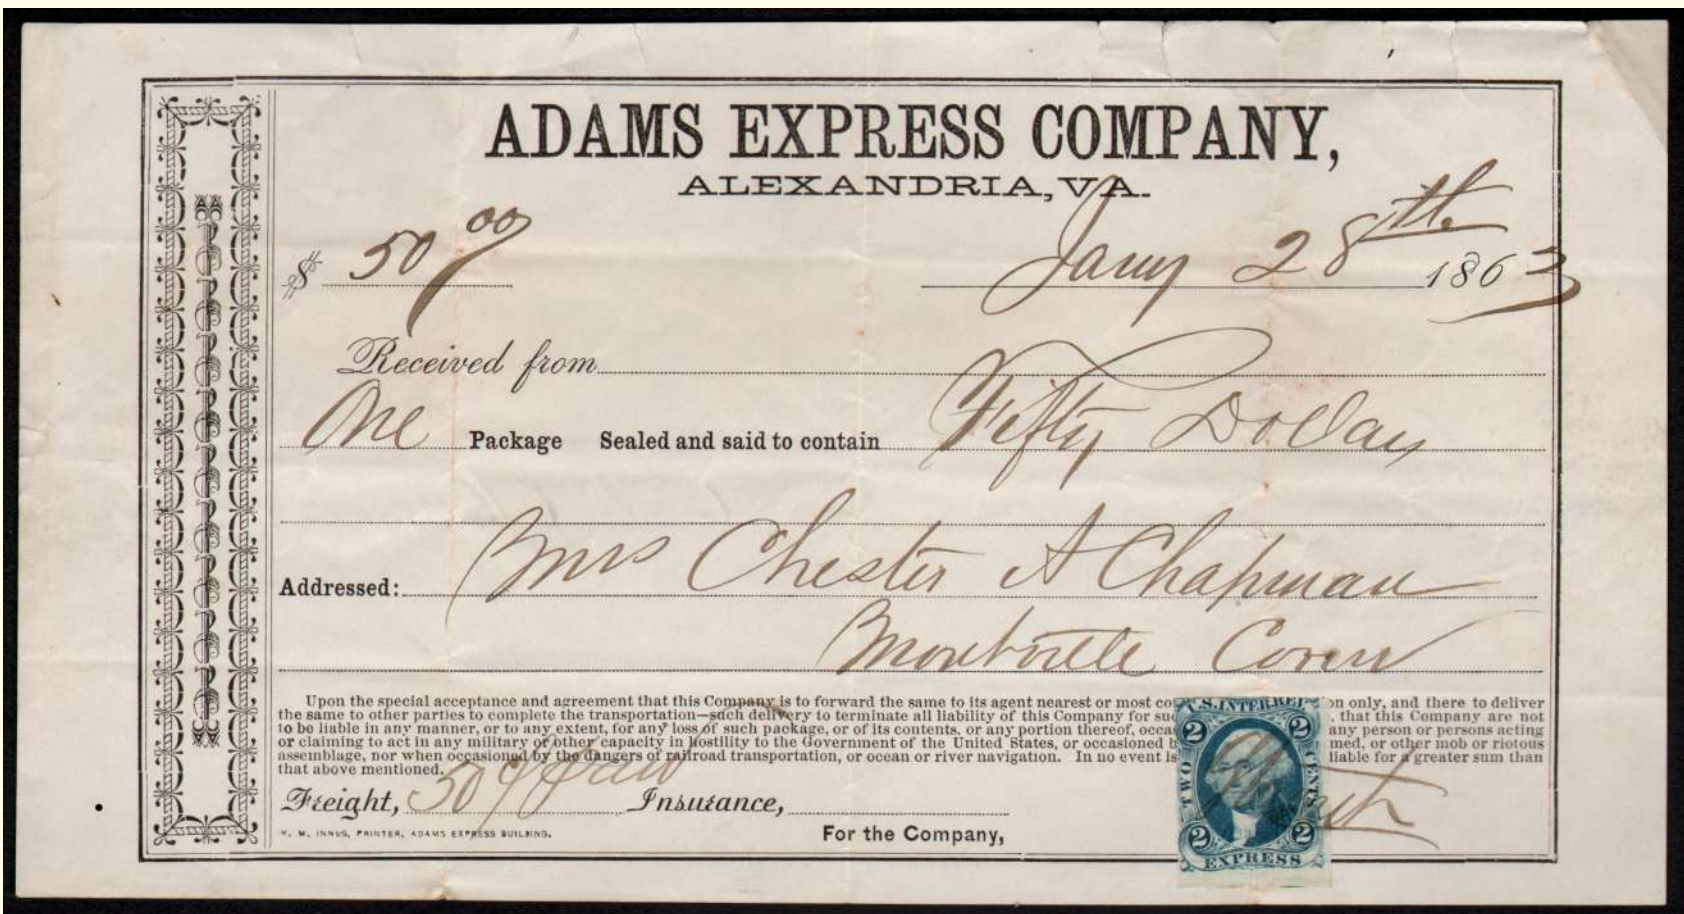 ADAMS EXPRESS COMPANY,
ALEXANDRIA, VA.
$ 50 00 Jany 28th 1863
Received from
One Package Sealed and said to contain Fifty Dollars
Addressed: Mrs Chester A Chapman
Montville Conn
Upon the special acceptance and agreement that this Company is to forward the same to its agent nearest or most co on only, and there to deliver
the same to other parties to complete the transportation—such delivery to terminate all liability of this Company for suc , that this Company are not
to be liable in any manner, or to any extent, for any loss of such package, or of its contents, or any portion thereof, occas any person or persons acting
or claiming to act in any military or other capacity in hostility to the Government of the United States, or occasioned b med, or other mob or riotous
assemblage, nor when occasioned by the dangers of railroad transportation, or ocean or river navigation. In no event is liable for a greater sum than
that above mentioned.
Freight, 50 Insurance,
V. M. INNES, PRINTER, ADAMS EXPRESS BUILDING.
For the Company,
U.S. INTER REV
2 2
TWO CENTS
2 2
EXPRESS